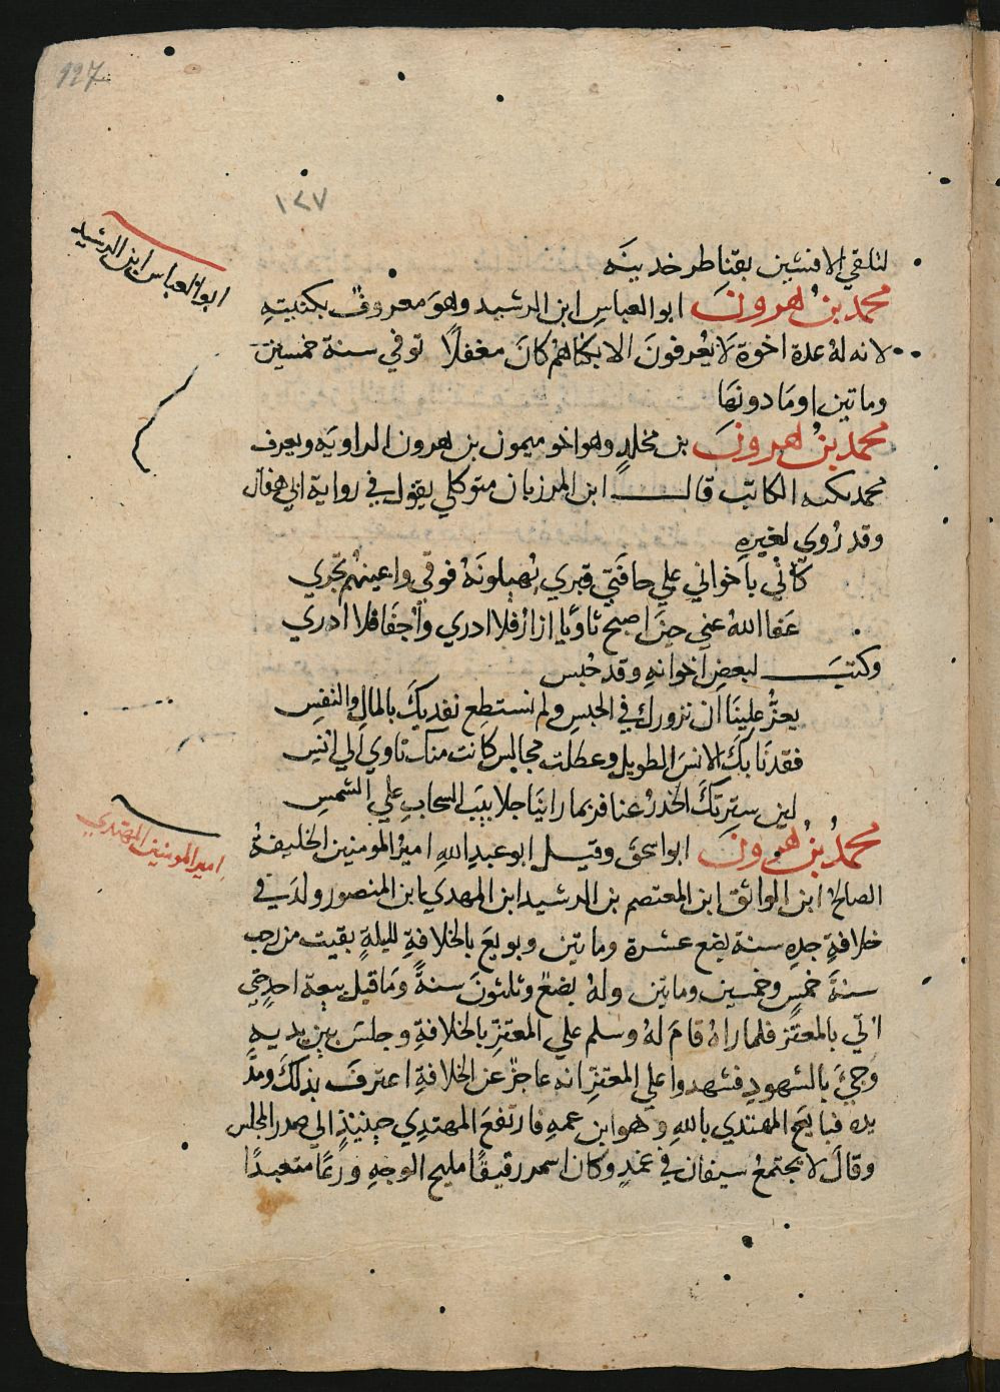 127
١٢٧
ابو العباس ابن الرشيد
لتلقي الافشين بقناطر خدينه
محمد بن هرون ابو العباس ابن الرشيد وهو معروف بكنيته
لانه له عدة اخوة لا يعرفون الا بكناهم كان مغفلًا توفي سنة خمسين
وماتين او ما دونها
محمد بن هرون بن مخلدٍ وهو اخو ميمون بن هرون الراويه ويعرف
محمد بكبه الكاتب قال ابن المرزبان متوكلي يقول في رواية ابي هفان
وقد رُوي لغيرهِ
كاني باخواني علي حافتي قبري يهيلونه فوقي واعينهم تجري
عفا الله عني حين اصبح ثاويًا ازار فلا ادري واجفا فلا ادري
وكتب لبعض اخوانهِ وقد حُبس
يعزُّ علينا ان نزورك في الحبس ولم نستطع نفديك بالمال والنفس
فقدنا بك الانس الطويل وعطلت مجالس كانت منك تاوي الي انس
لين سترتك الخدر عنا فربما راينا جلابيب السحاب علي الشمس
محمد بن هرون ابو اسحق وقيل ابو عبد الله امير المومنين الخليفة
امير المومنين المهتدي
الصالح ابن الواثق ابن المعتصم بن الرشيد ابن المهدي بن المنصور ولد في
خلافةِ جدهِ سنة بضع عشرة وماتين وبويع بالخلافةِ لليلةٍ بقيت من رجب
سنة خمسٍ وخمسين وماتين وله بضعٌ وثلثون سنةً وما قبل بيعة احدٍ حتي
اتي بالمعتز فلما راهُ قام لهُ وسلم علي المعتزِ بالخلافةِ وجلس بين يديهِ
وجيَ بالشهودِ فشهدوا علي المعتزِ انه عاجزٌ عن الخلافةِ اعترف بذلك ومدَّ
يده فبايع المهتدي باللهِ وهو ابن عمهِ فارتفع المهتدِي حينيذٍ الي صدر المجلس
وقال لا يجتمعُ سيفان في غمدٍ وكان اسمر رقيقًا مليح الوجهِ ورعًا متعبدًا